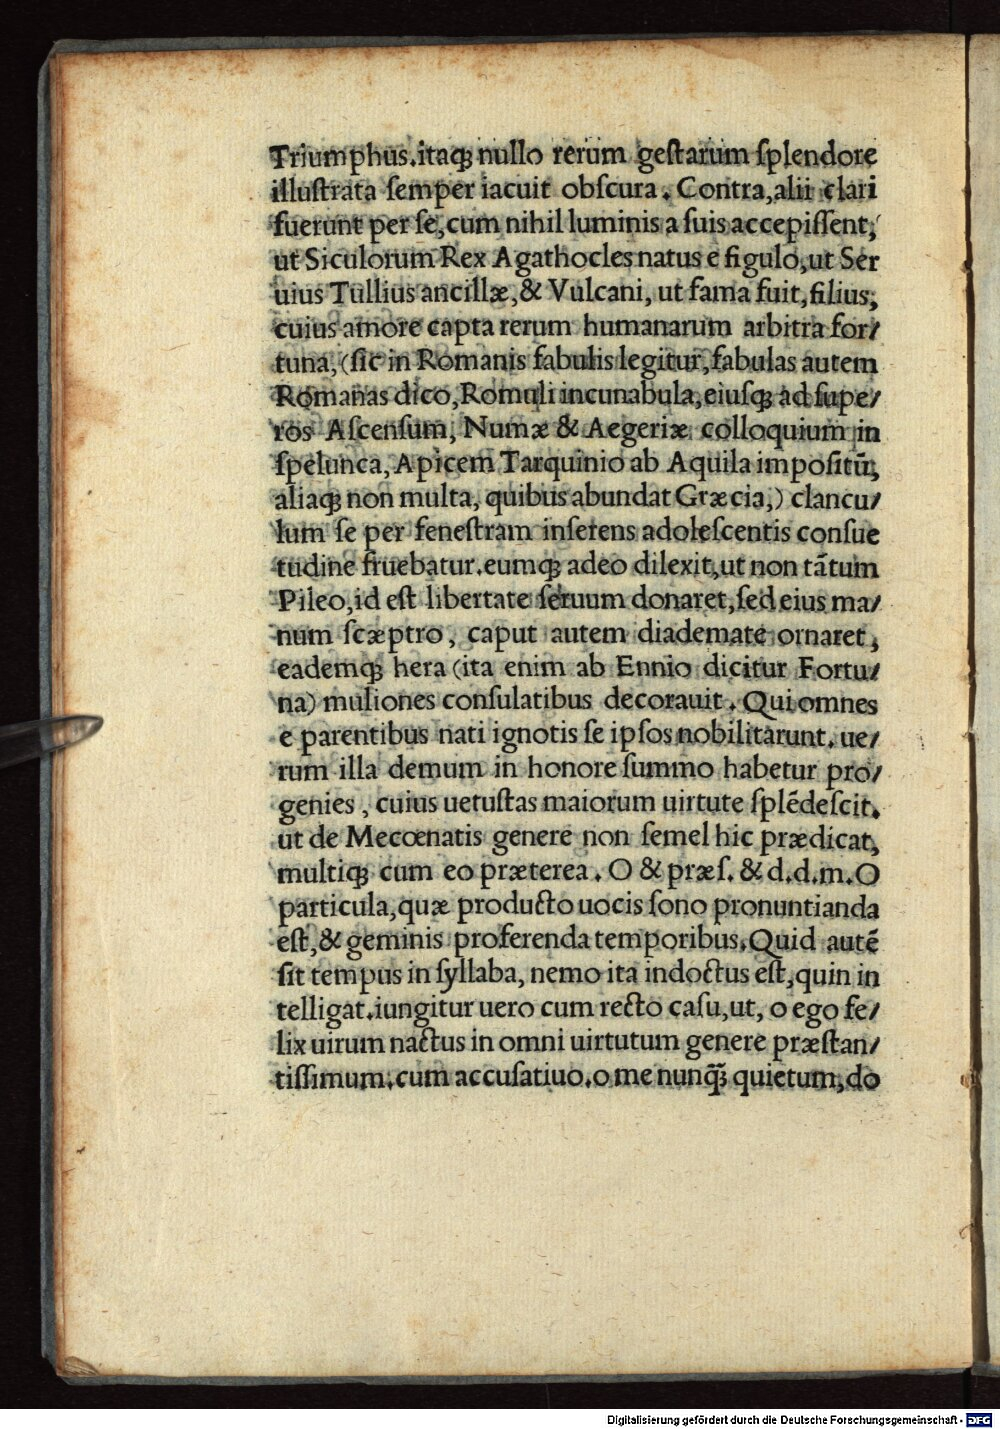 Triumphus.itaqꝫ nullo rerum gestarum ſplendore
illuſtrata ſemper iacuit obſcura. Contra,alii clari
fuerunt per ſe,cum nihil luminis a ſuis accepiſſent,
ut Siculorum Rex Agathocles natus e figulo,ut Ser
uius Tullius ancillæ,& Vulcani, ut fama fuit,filius,
cuius amore capta rerum humanarum arbitra for/
tuna,(ſic in Romanis fabulis legitur,fabulas autem
Romanas dico,Romuli incunabula,eiuſqꝫ ad ſupe/
ros Aſcenſum, Numæ & Aegeriæ colloquium in
ſpelunca, Apicem Tarquinio ab Aquila impoſitū,
aliaqꝫ non multa, quibus abundat Græcia,) clancu/
lum ſe per feneſtram inſerens adoleſcentis conſue
tudine fruebatur.eumqꝫ adeo dilexit,ut non tātum
Pileo,id eſt libertate ſeruum donaret,ſed eius ma/
num ſcæptro, caput autem diademate ornaret,
eademqꝫ hera (ita enim ab Ennio dicitur Fortu/
na) muliones conſulatibus decorauit. Qui omnes
e parentibus nati ignotis ſe ipſos nobilitarunt. ue/
rum illa demum in honore ſummo habetur pro/
genies, cuius uetuſtas maiorum uirtute ſplēdeſcit.
ut de Mecœnatis genere non ſemel hic prædicat,
multiqꝫ cum eo præterea. O & præſ. & d.d.m.O
particula,quæ producto uocis ſono pronuntianda
eſt,& geminis proferenda temporibus.Quid autē
ſit tempus in ſyllaba, nemo ita indoctus eſt,quin in
telligat.iungitur uero cum recto caſu,ut, o ego fe/
lix uirum nactus in omni uirtutum genere præſtan/
tiſſimum.cum accuſatiuo.o me nunqꝫ̄ quietum,do
Digitalisierung gefördert durch die Deutsche Forschungsgemeinschaft - DFG